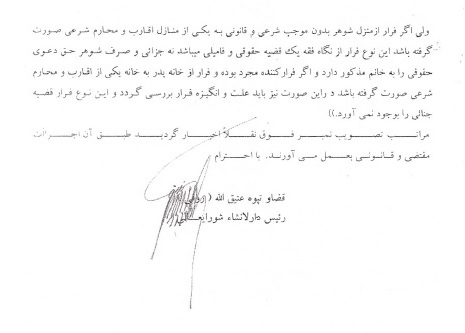 ولی اگر فرار ازمنزل شوهر بدون موجب شرعی و قانونی به یکی از منازل اقارب و محارم شرعی صورت
گرفته باشد این نوع فرار از نگاه فقه یك قضیه حقوقی و فامیلی میباشد نه جزائی و صرف شوهر حق دعوی
حقوقی را به خانم مذکور دارد و اگر فرارکننده مجرد بوده و فرار او خانه پدر به خانه یکی از اقارب و محارم
شرعی صورت گرفته باشد د راین صورت نیز باید علت و انگیزه فرار بررسی گردد و این نوع فرار قضیه
جنائی را بوجود نمی آورد.))
مراتب تصویب نمبر فوق نقلاً اخبار گردید طبق آن اجراآت
مقتضی و قانونی بعمل می آورند. با احترام
قضاو نپوه عتیق الله
رئیس دارلانشاء شورایعالی